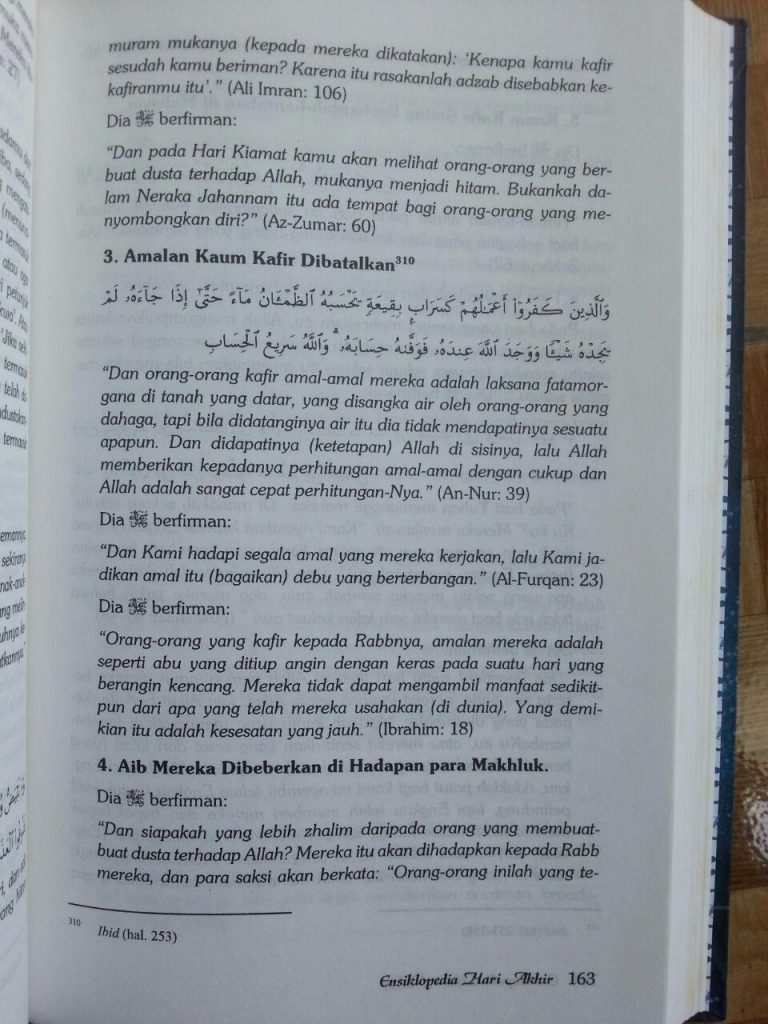 muram mukanya (kepada mereka dikatakan): ‘Kenapa kamu kafir
sesudah kamu beriman? Karena itu rasakanlah adzab disebabkan ke-
kafiranmu itu’.” (Ali Imran: 106)
Dia ﷻ berfirman:
“Dan pada Hari Kiamat kamu akan melihat orang-orang yang ber-
buat dusta terhadap Allah, mukanya menjadi hitam. Bukankah da-
lam Neraka Jahannam itu ada tempat bagi orang-orang yang me-
nyombongkan diri?” (Az-Zumar: 60)
3. Amalan Kaum Kafir Dibatalkan³¹⁰
وَالَّذِينَ كَفَرُوٓا۟ أَعْمَٰلُهُمْ كَسَرَابٍۭ بِقِيعَةٍ يَحْسَبُهُ ٱلظَّمْـَٔانُ مَآءً حَتَّىٰٓ إِذَا جَآءَهُۥ لَمْ
يَجِدْهُ شَيْـًٔا وَوَجَدَ ٱللَّهَ عِندَهُۥ فَوَفَّىٰهُ حِسَابَهُۥ ۗ وَٱللَّهُ سَرِيعُ ٱلْحِسَابِ
“Dan orang-orang kafir amal-amal mereka adalah laksana fatamor-
gana di tanah yang datar, yang disangka air oleh orang-orang yang
dahaga, tapi bila didatanginya air itu dia tidak mendapatinya sesuatu
apapun. Dan didapatinya (ketetapan) Allah di sisinya, lalu Allah
memberikan kepadanya perhitungan amal-amal dengan cukup dan
Allah adalah sangat cepat perhitungan-Nya.” (An-Nur: 39)
Dia ﷻ berfirman:
“Dan Kami hadapi segala amal yang mereka kerjakan, lalu Kami ja-
dikan amal itu (bagaikan) debu yang berterbangan.” (Al-Furqan: 23)
Dia ﷻ berfirman:
“Orang-orang yang kafir kepada Rabbnya, amalan mereka adalah
seperti abu yang ditiup angin dengan keras pada suatu hari yang
berangin kencang. Mereka tidak dapat mengambil manfaat sedikit-
pun dari apa yang telah mereka usahakan (di dunia). Yang demi-
kian itu adalah kesesatan yang jauh.” (Ibrahim: 18)
4. Aib Mereka Dibeberkan di Hadapan para Makhluk.
Dia ﷻ berfirman:
“Dan siapakah yang lebih zhalim daripada orang yang membuat-
buat dusta terhadap Allah? Mereka itu akan dihadapkan kepada Rabb
mereka, dan para saksi akan berkata: “Orang-orang inilah yang te-
310 Ibid (hal. 253)
Ensiklopedia Hari Akhir 163